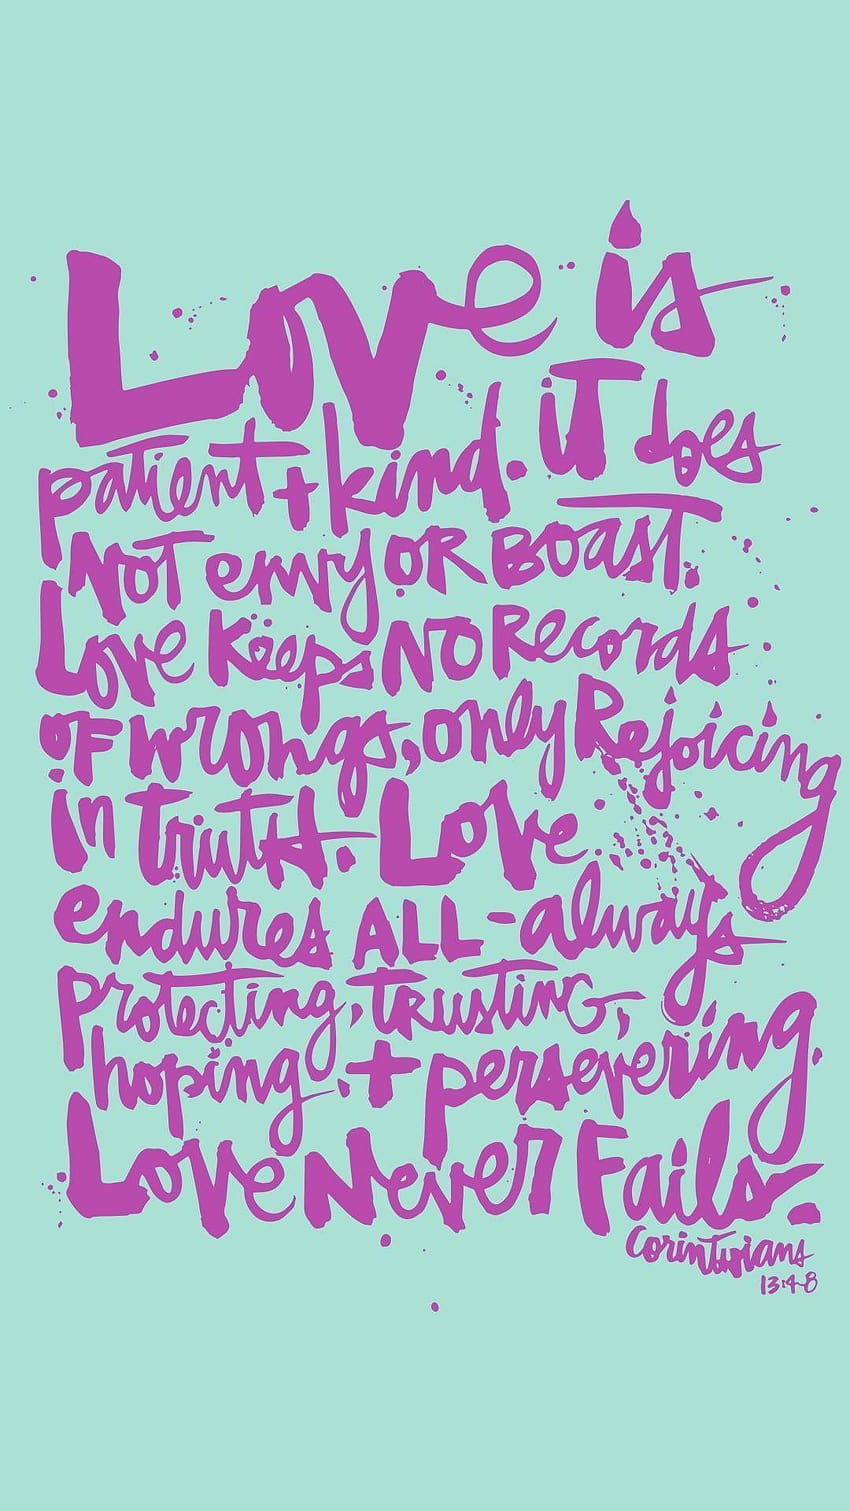 Love is
patient + kind. it does
Not envy OR BOAST.
Love Keeps NO Records
OF wrongs, only Rejoicing
in truth. Love
endures ALL - always
Protecting, TRUSTING,
hoping, + persevering.
Love Never Fails.
Corinthians
13:4-8